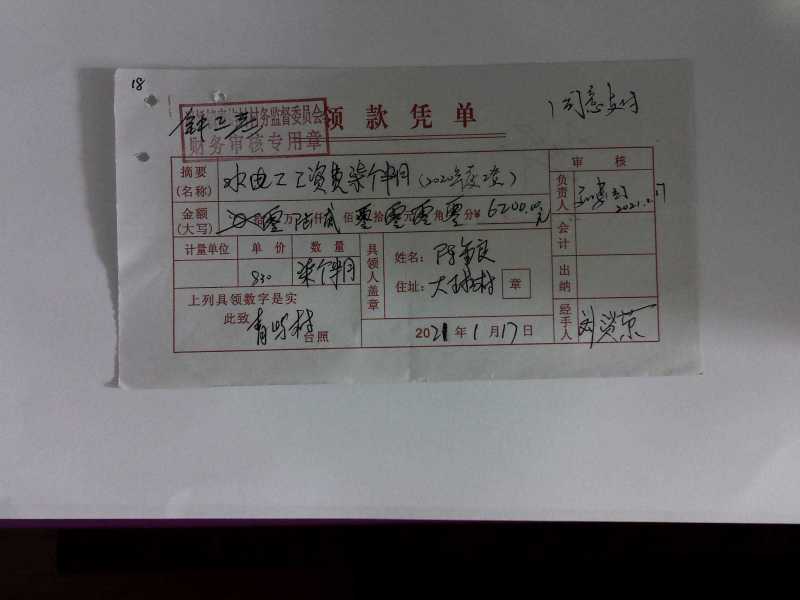 18
同意支付
务监督委员会
财务审核专用章
领款凭单
摘要(名称) 水电工工资费柒个半月(2020年度
审核
负责人 2021.
金额(大写) 零万陆仟贰佰零拾零元零角零分¥6200.00元
会计
计量单位 单价 数量
830 柒个半月
具领人盖章
姓名:
住址: 村 章
出纳
上列具领数字是实
此致 青 村 台照
2021年1月17日
经手人 刘